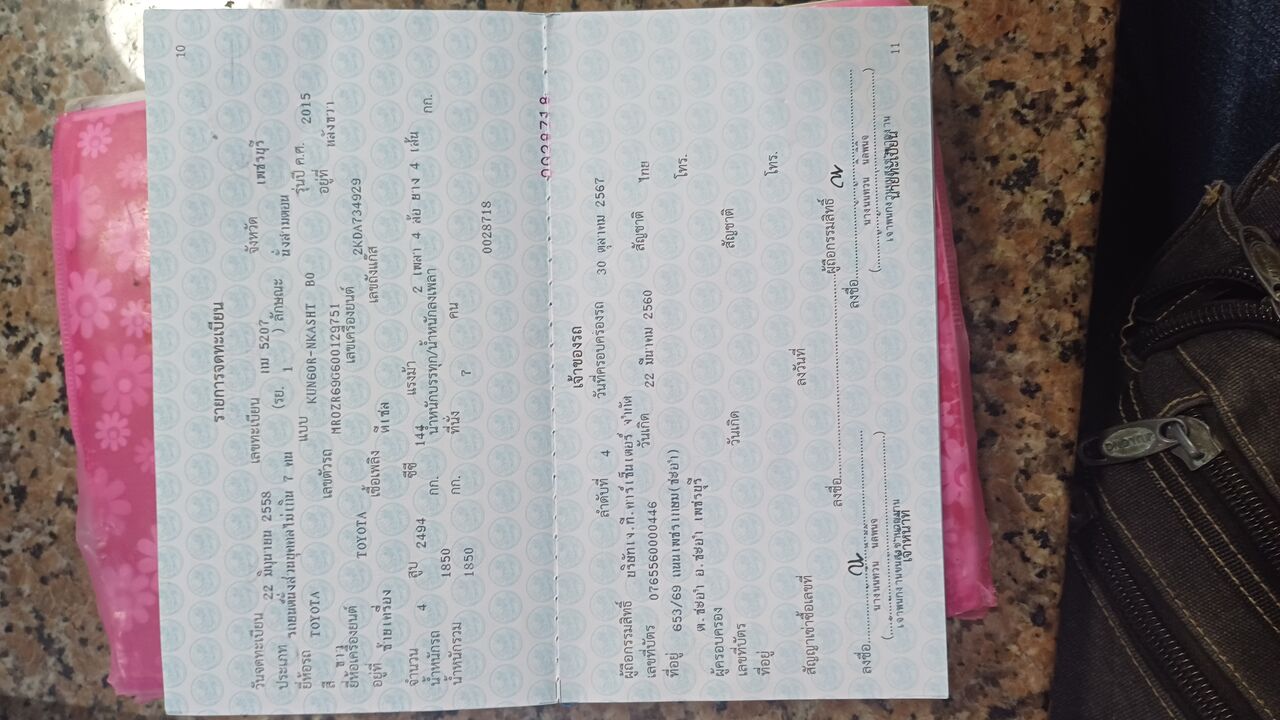 10
รายการจดทะเบียน
วันจดทะเบียน 22 มิถุนายน 2558 เลขทะเบียน 5207 จังหวัด เพชรบุรี
ประเภท รถยนต์นั่งส่วนบุคคลไม่เกิน 7 คน (รย. 1 ) ลักษณะ นั่งสามตอน
ยี่ห้อรถ TOYOTA แบบ KUN60R-NKASHT B0 รุ่นปี ค.ศ. 2015
สี ขาว เลขตัวรถ MR0ZR69G600129751 อยู่ที่ หลังขวา
ยี่ห้อเครื่องยนต์ TOYOTA เลขเครื่องยนต์ 2KDA734929
อยู่ที่ ซ้ายเครื่อง เชื้อเพลิง ดีเซล เลขถังแก๊ส
จำนวน 4 สูบ 2494 ซีซี 144 แรงม้า 2 เพลา 4 ล้อ ยาง 4 เส้น
น้ำหนักรถ 1850 กก. น้ำหนักบรรทุก/น้ำหนักลงเพลา กก.
น้ำหนักรวม 1850 กก. ที่นั่ง 7 คน
0028718
0028718
เจ้าของรถ
ลำดับที่ 4 วันที่ครอบครองรถ 30 ตุลาคม 2567
ผู้ถือกรรมสิทธิ์ บริษัทเจ.ที.คาร์เซ็นเตอร์ จำกัด
เลขที่บัตร 0765560000446 วันเกิด 22 มีนาคม 2560 สัญชาติ ไทย
ที่อยู่ 653/69 ถนนเพชรเกษม(ชะอำ) โทร.
ต.ชะอำ อ.ชะอำ เพชรบุรี
ผู้ครอบครอง
เลขที่บัตร วันเกิด สัญชาติ
ที่อยู่ โทร.
สัญญาเช่าซื้อเลขที่ ลงวันที่
ลงชื่อ ผู้ถือกรรมสิทธิ์
ลงชื่อ ลงชื่อ
เจ้าหน้าที่ นายทะเบียน
11